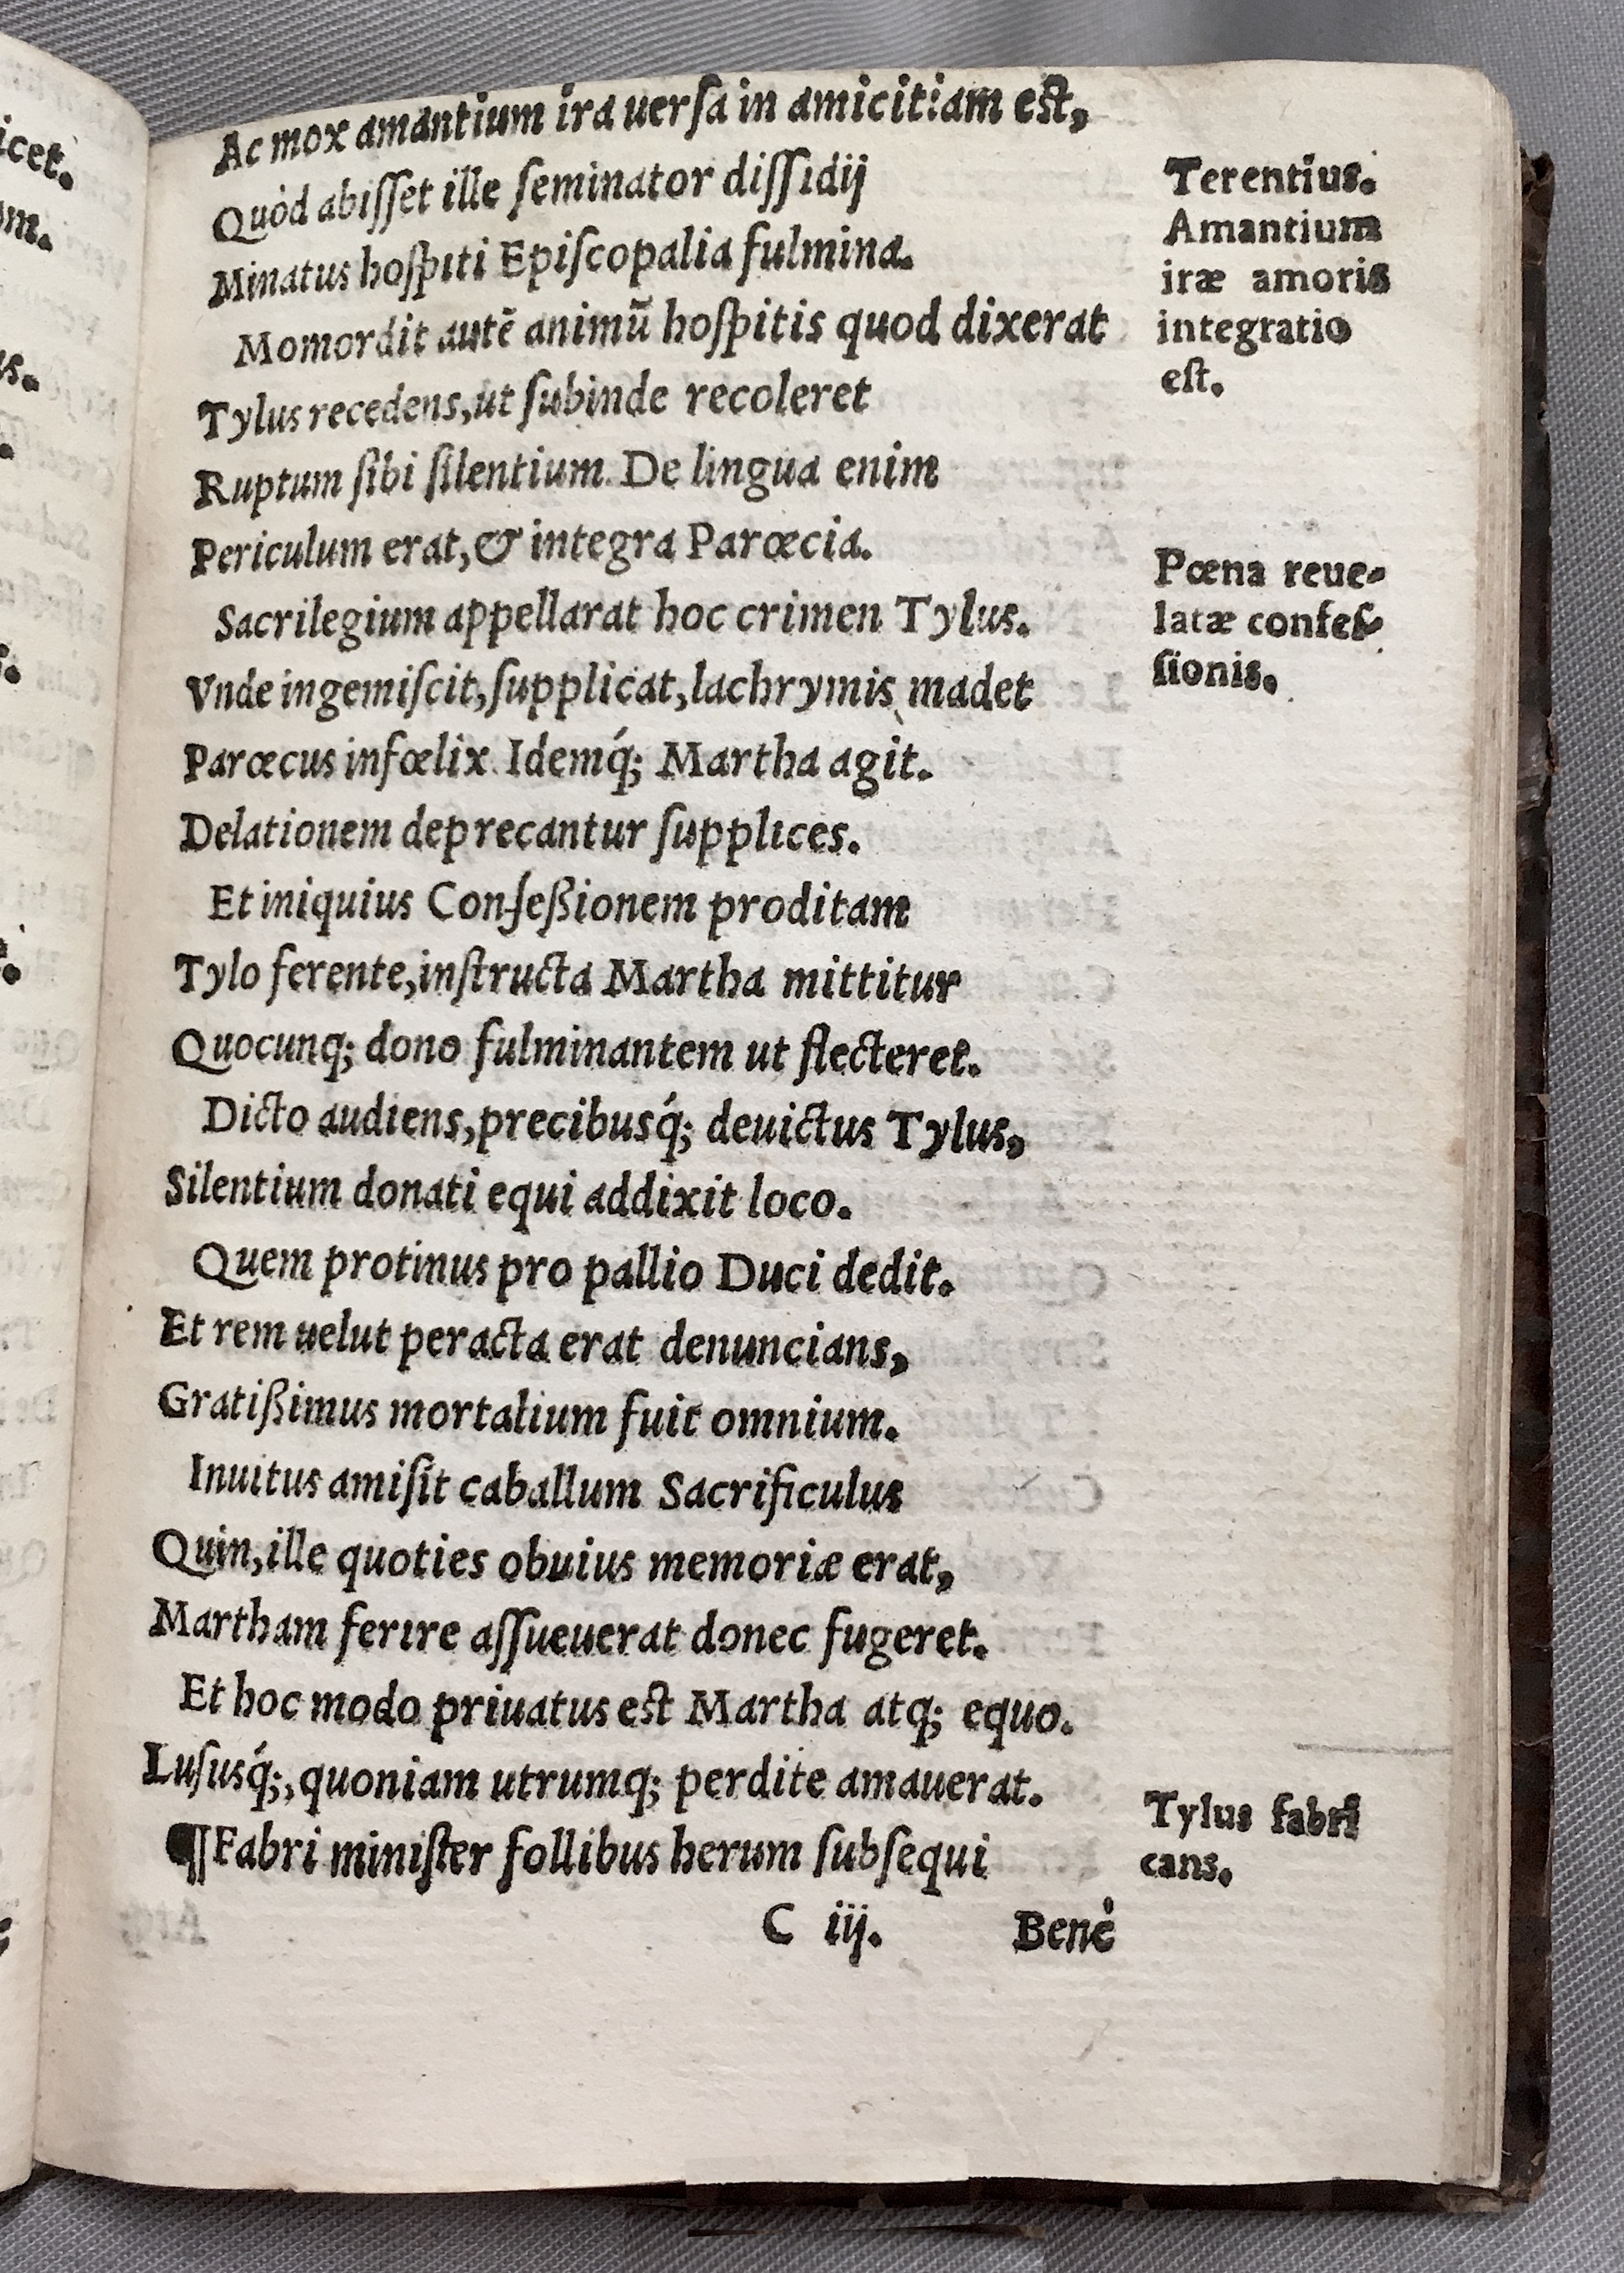 Ac mox amantium ira uerſa in amicitiam est,
Quòd abiſſet ille ſeminator diſſidij
Minatus hoſpiti Epiſcopalia fulmina.
Momordit autē animū hoſpitis quod dixerat
Tylus recedens, ut ſubinde recoleret
Ruptum ſibi ſilentium. De lingua enim
Periculum erat, & integra Parœcia.
Sacrilegium appellarat hoc crimen Tylus.
Vnde ingemiſcit, ſupplicat, lachrymis madet
Parœcus infœlix. Idemq́; Martha agit.
Delationem deprecantur ſupplices.
Et iniquius Confeßionem proditam
Tylo ferente, inſtructa Martha mittitur
Quocunq; dono fulminantem ut flecteret.
Dicto audiens, precibusq́; deuictus Tylus,
Silentium donati equi addixit loco.
Quem protinus pro pallio Duci dedit.
Et rem uelut peracta erat denuncians,
Gratißimus mortalium fuit omnium.
Inuitus amiſit caballum Sacrificulus
Quin, ille quoties obuius memoriæ erat,
Martham ferire aſſueuerat donec fugeret.
Et hoc modo priuatus est Martha atq; equo.
Luſusq́;, quoniam utrumq; perdite amauerat.
¶ Fabri miniſter follibus herum ſubſequi
C iij. Benè
Terentius.
Amantium
iræ amoris
integratio
eſt.
Pœna reue-
latæ confeſ-
ſionis.
Tylus fabri
cans.
icet.
m.
us.